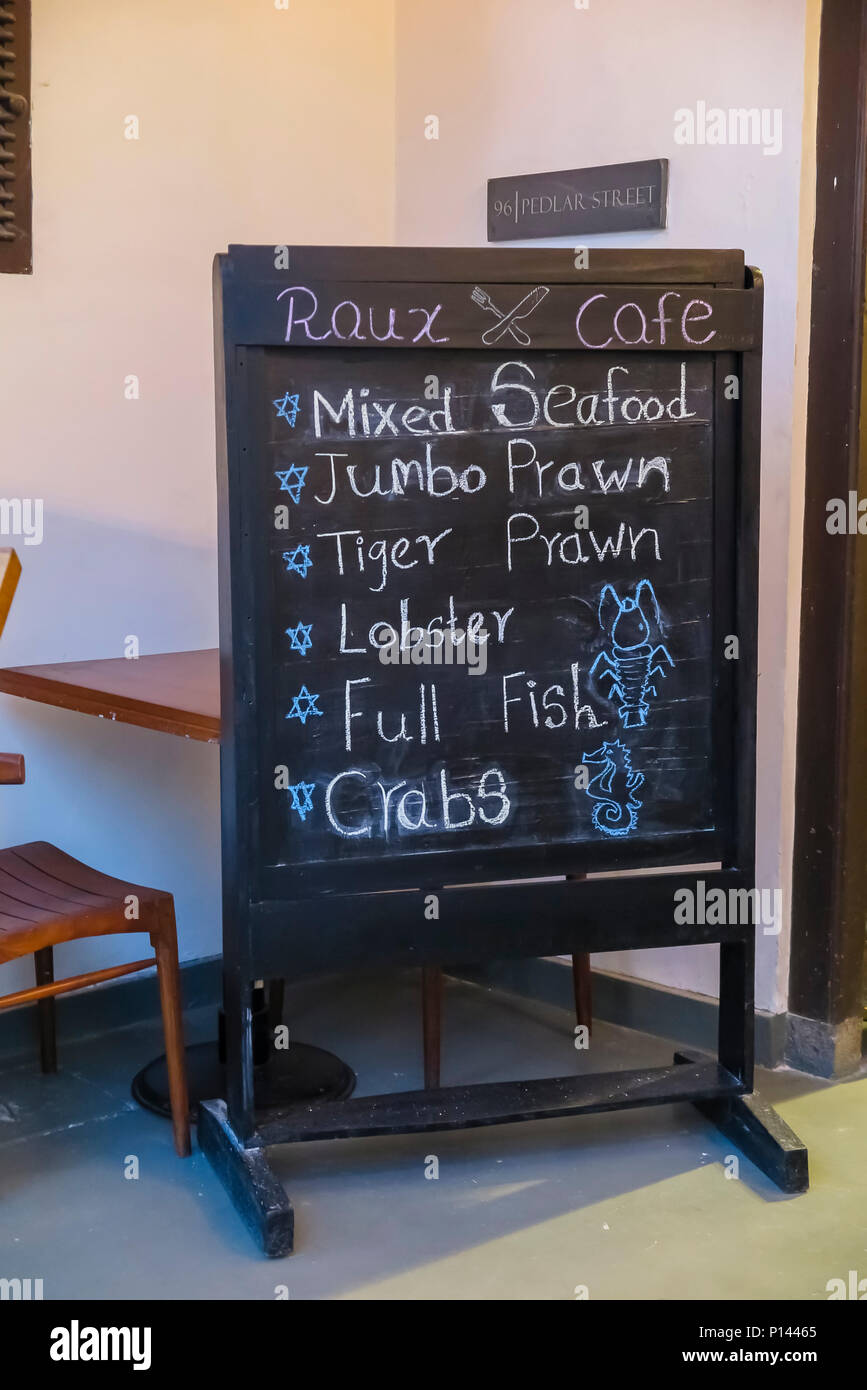 96|PEDLAR STREET
Raux Cafe
Mixed Seafood
Jumbo Prawn
Tiger Prawn
Lobster
Full Fish
Crabs
alamy
Image ID: P14465
www.alamy.com